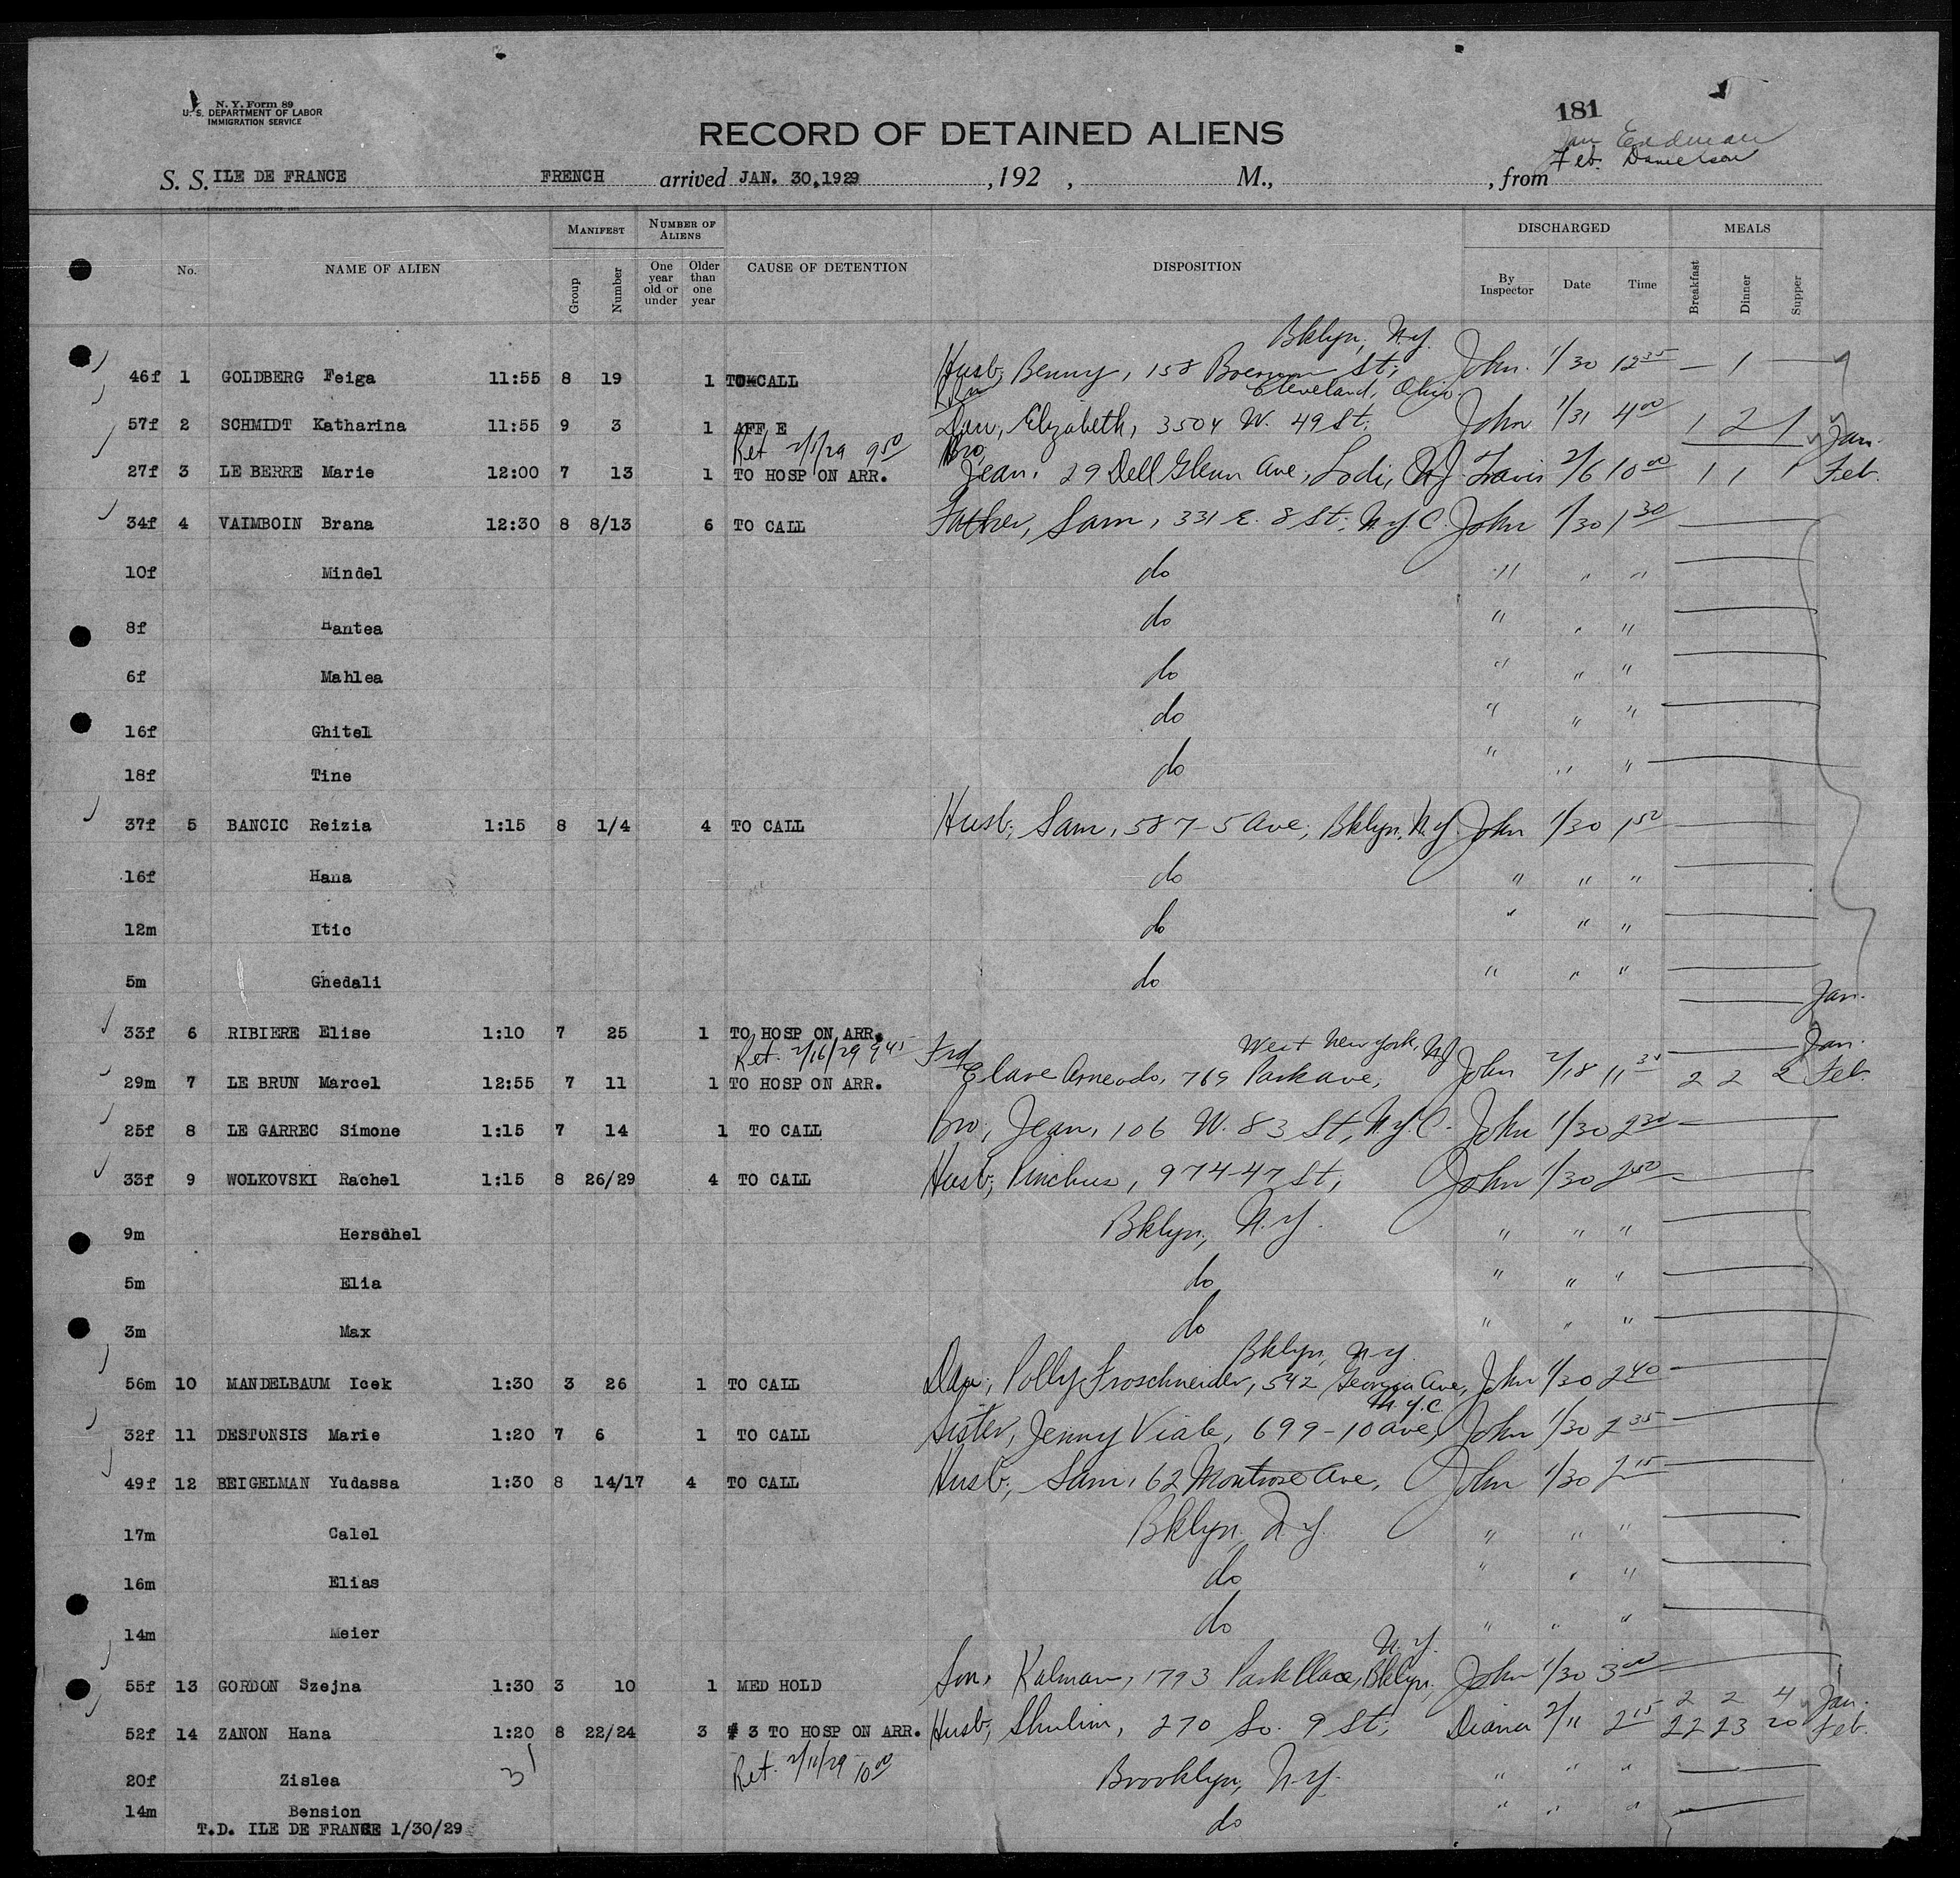 N. Y. Form 89
U. S. DEPARTMENT OF LABOR
IMMIGRATION SERVICE
181
RECORD OF DETAINED ALIENS
Jan Eadman
Feb. Danielson
S. S. ILE DE FRANCE FRENCH arrived JAN. 30,1929 , 192 , M., , from
MANIFEST NUMBER OF ALIENS DISCHARGED MEALS
No. NAME OF ALIEN Group Number One year old or under Older than one year CAUSE OF DETENTION DISPOSITION By Inspector Date Time Breakfast Dinner Supper
Bklyn, N.Y.
46f 1 GOLDBERG Feiga 11:55 8 19 1 TO CALL Husb, Benny, 158 St; John. 1/30 12 35 — 1 —
Cleveland, Ohio.
57f 2 SCHMIDT Katharina 11:55 9 3 1 AFF E Dau, Elizabeth, 3504 W. 49 St. John 1/31 4 00 1 2 1 Jan.
Ret 2/1/29 9 50 Bro
27f 3 LE BERRE Marie 12:00 7 13 1 TO HOSP ON ARR. Jean, 29 Dell Glenn Ave, Lodi, N.J. Travis 2/6 10 00 1 1 1 Feb.
34f 4 VAIMBOIN Brana 12:30 8 8/13 6 TO CALL Father, Sam, 331 E. 8 St; N.Y.C. John 1/30 1 30
10f Mindel do " " "
8f Hantea do " " "
6f Mahlea do " " "
16f Ghitel do " " "
18f Tine do " " "
37f 5 BANCIC Reizia 1:15 8 1/4 4 TO CALL Husb; Sam, 587-5 Ave; Bklyn, N.Y. John 1/30 1 50
16f Hana do " " "
12m Itic do " " "
5m Ghedali do " " "
Jan.
33f 6 RIBIERE Elise 1:10 7 25 1 TO HOSP ON ARR. Jan.
Ret. 2/16/29 9 45 Frd West New York, N.J.
29m 7 LE BRUN Marcel 12:55 7 11 1 TO HOSP ON ARR. Arneodo, 769 Park Ave; John 2/18 11 35 2 2 2 Feb.
25f 8 LE GARREC Simone 1:15 7 14 1 TO CALL Bro, Jean, 106 W. 83 St, N.Y.C. John 1/30 2 30
33f 9 WOLKOVSKI Rachel 1:15 8 26/29 4 TO CALL Husb; Pinchus, 974-47 St, John 1/30 2 40
9m Herschel Bklyn, N.Y. " " "
5m Elia do " " "
3m Max do " " "
Bklyn, N.Y.
56m 10 MANDELBAUM Icek 1:30 3 26 1 TO CALL Dau, Polly Froschneider, 542 Georgia Ave, John 1/30 2 40
N.Y.C.
32f 11 DESTONSIS Marie 1:20 7 6 1 TO CALL Sister, Jenny Viale, 699-10 Ave, John 1/30 2 35
49f 12 BEIGELMAN Yudassa 1:30 8 14/17 4 TO CALL Husb; Sam, 62 Montrose Ave, John 1/30 2 15
17m Calel Bklyn, N.Y. " " "
16m Elias do " " "
14m Meier do " " "
N.Y.
55f 13 GORDON Szejna 1:30 3 10 1 MED HOLD Son, Kalman, 1793 Park Place, Bklyn, John 1/30 3 00
2 2 4 Jan.
52f 14 ZANON Hana 1:20 8 22/24 3 # 3 TO HOSP ON ARR. Husb; Shulim, 270 So. 9 St; Diana 2/11 2 15 22 23 20 Feb.
Ret. 2/11/29 10 00
20f Zislea 3 Brooklyn, N.Y. " " "
14m Bension do " " "
T.D. ILE DE FRANCE 1/30/29